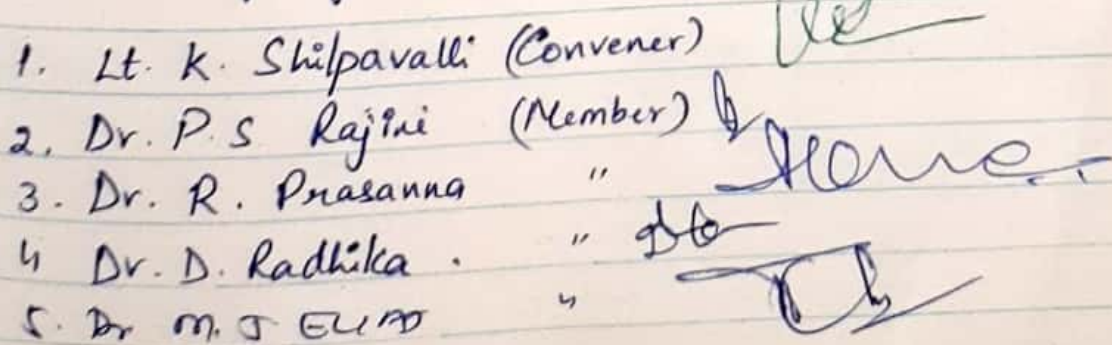 1. Lt. K. Shilpavalli (Convener)
2. Dr. P. S Rajini (Member)
3. Dr. R. Prasanna "
4 Dr. D. Radhika . "
5. Dr M. J ELIAS "